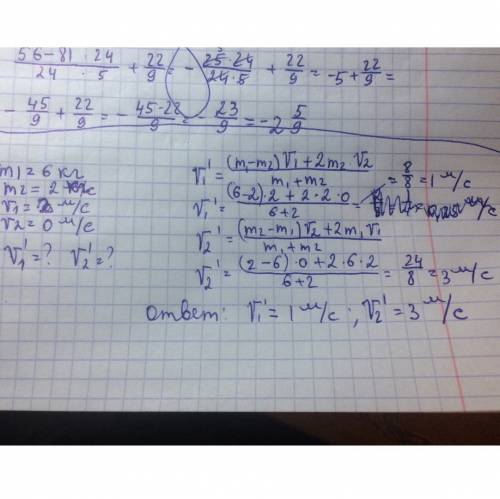 56-81·24/24·5 + 22/9 = - 25·24/24·5 + 22/9 = -5+22/9 =
- 45/9 + 22/9 = - 45-22/9 = - 23/9 = -2 5/9
m1 = 6 кг
m2 = 2 кг
v1 = 2 м/с
v2 = 0 м/с
v1' = ? v2' = ?
v1' = (m1-m2)v1+2m2·v2/m1+m2
v1' = (6-2)·2+2·2·0/6+2 = = 8/8 = 1 м/с
v2' = (m2-m1)v2+2m1v1/m1+m2
v2' = (2-6)·0+2·6·2/6+2 = 24/8 = 3 м/с
ответ: v1' = 1 м/с ; v2' = 3 м/с